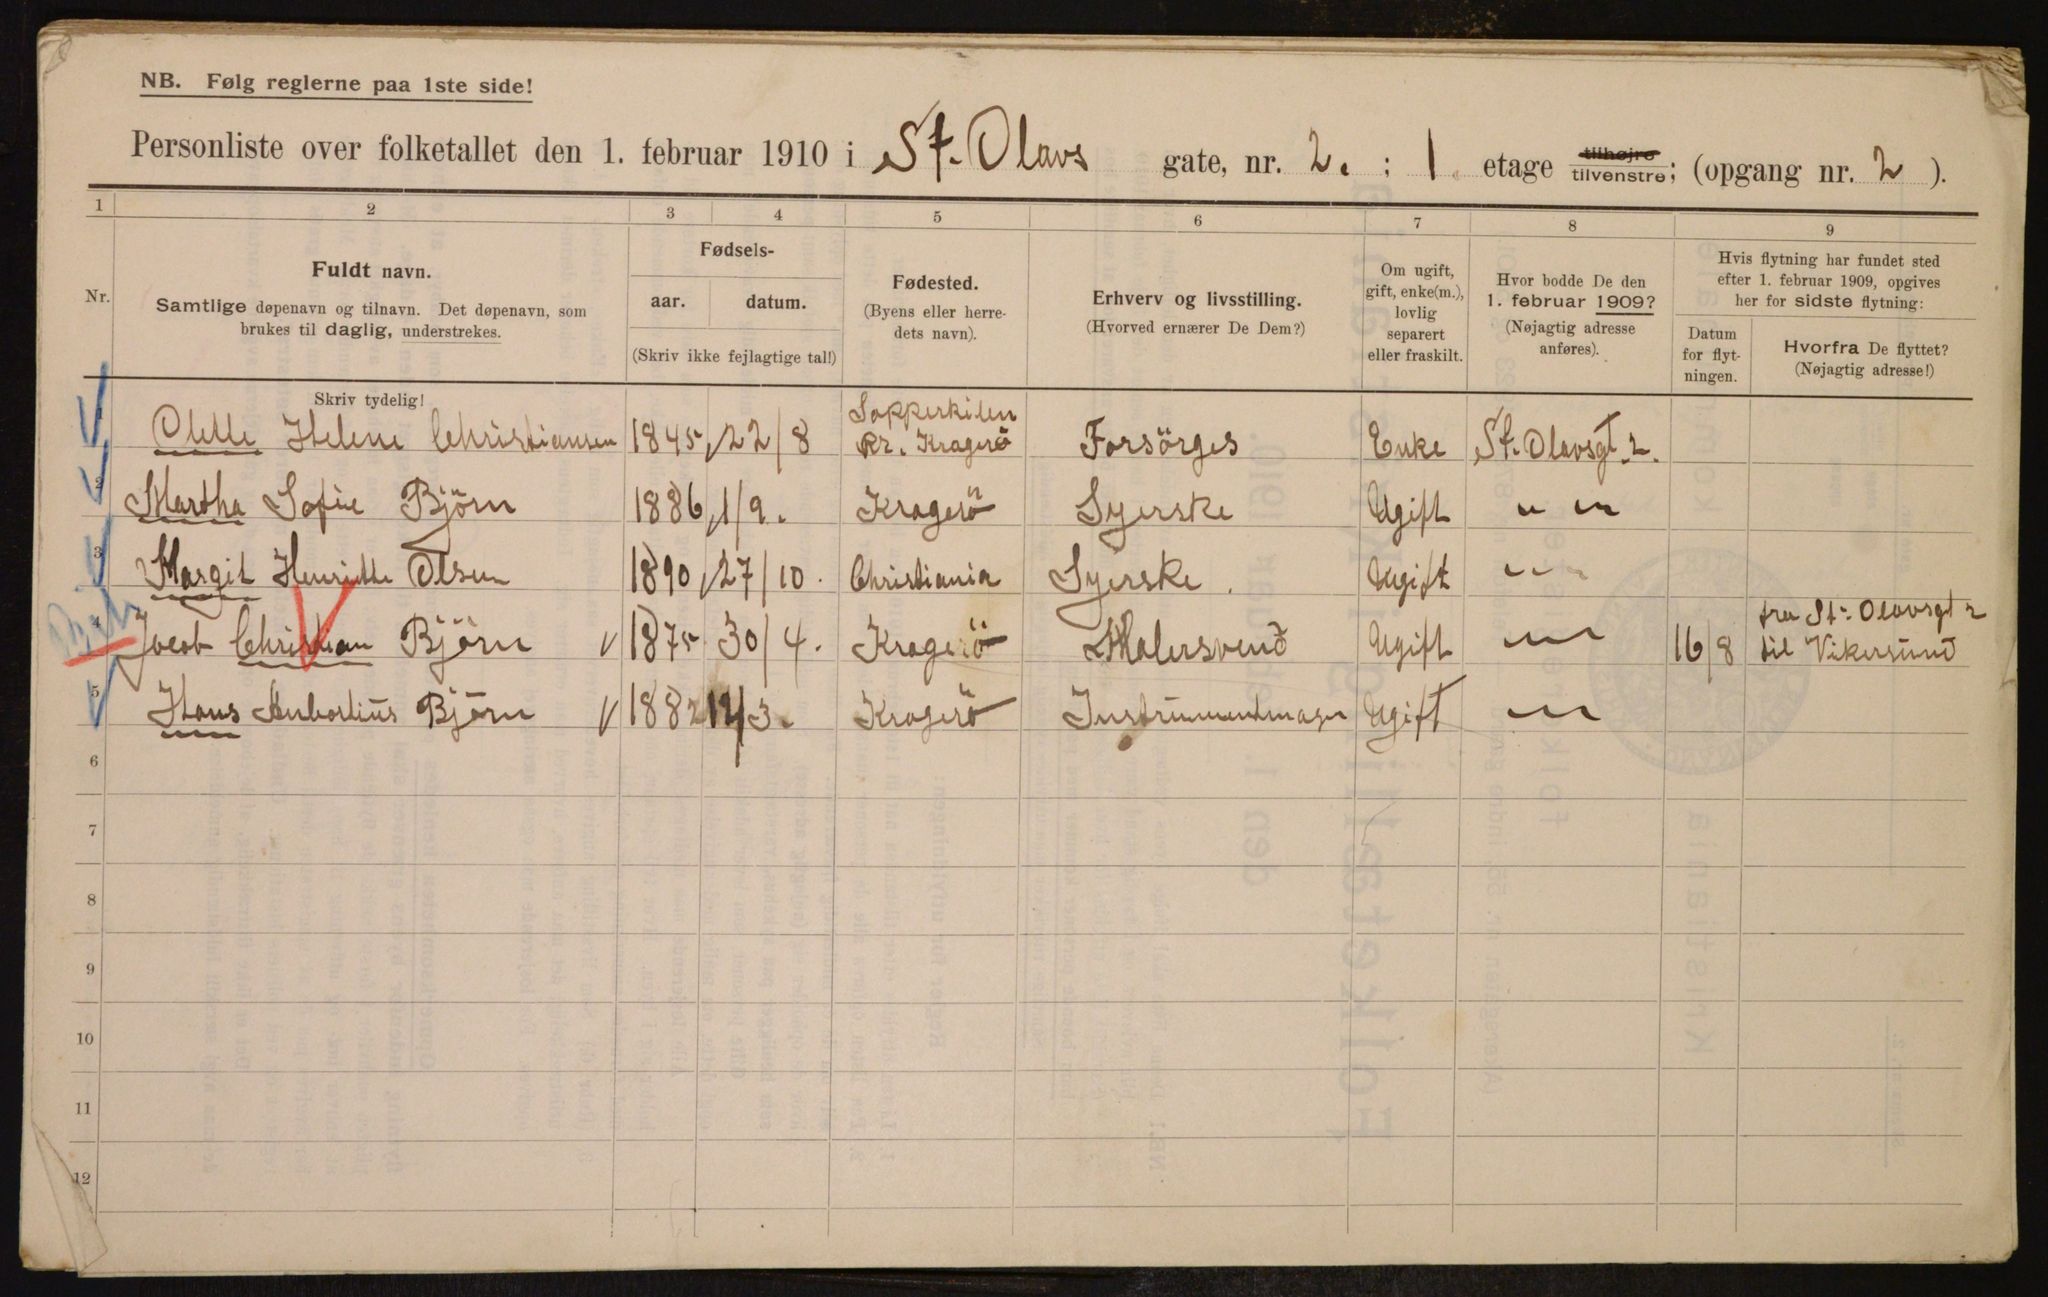 NB. Følg reglerne paa 1ste side!
Personliste over folketallet den 1. februar 1910 i St. Olavs gate, nr. 2. ; 1. etage tilhøjre tilvenstre; (opgang nr. 2 ).
1 2 3 4 5 6 7 8 9
Nr.
Fuldt navn.
Samtlige døpenavn og tilnavn. Det døpenavn, som
brukes til daglig, understrekes.
Skriv tydelig!
Fødsels-
aar. datum.
(Skriv ikke fejlagtige tal!)
Fødested.
(Byens eller herre-
dets navn).
Erhverv og livsstilling.
(Hvorved ernærer De Dem?)
Om ugift,
gift, enke(m.),
lovlig
separert
eller fraskilt.
Hvor bodde De den
1. februar 1909?
(Nøjagtig adresse
anføres).
Hvis flytning har fundet sted
efter 1. februar 1909, opgives
her for sidste flytning:
Datum
for flyt-
ningen.
Hvorfra De flyttet?
(Nøjagtig adresse!)
Helene Christiansen 1845 22/8 pr. Kragerö Forsörges Enke St. Olavsgt. 2.
2 Martha Sofie Björn 1886 1/9. Kragerö Syerske Ugift " "
3 Margit Henriette Olsen 1890 27/10. Christiania Syerske. Ugift " "
4 Jacob Christian Björn 1875 30/4. Kragerö Malersvend Ugift " 16/8 fra St. Olavsgt 2
til Vikersund
5 Hans Björn 1882 12/3. Kragerö Instrumentmager Ugift "
6
7
8
9
10
11
12